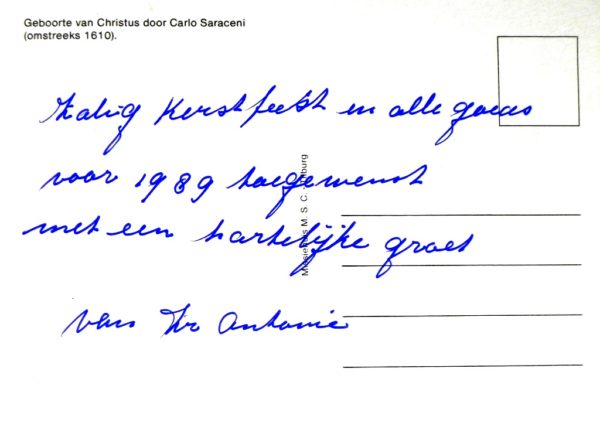 Geboorte van Christus door Carlo Saraceni
(omstreeks 1610).
Zalig Kerstfeest en alle goeds
voor 1989 toegewenst
met een hartelijke groet
van Zr Antonie
M.S.C.